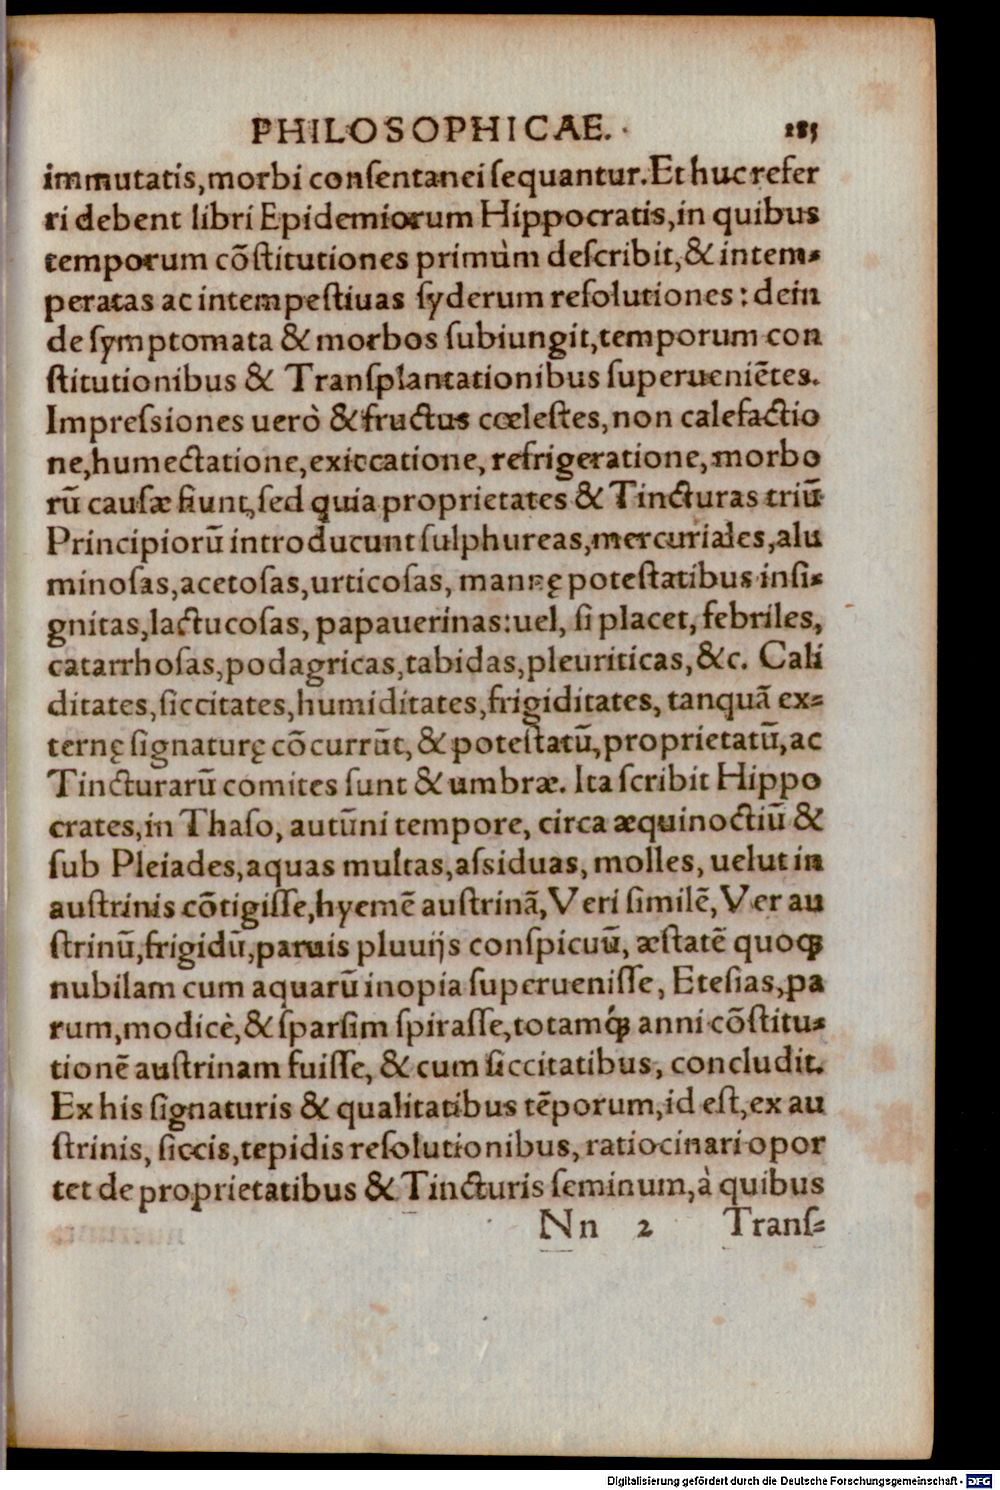 PHILOSOPHICAE. 283
immutatis,morbi conſentanei ſequantur.Et huc refer
ri debent libri Epidemiorum Hippocratis,in quibus
temporum cõſtitutiones primùm deſcribit,& intem-
peratas ac intempeſtiuas ſyderum reſolutiones: dein
de ſymptomata & morbos ſubiungit,temporum con
ſtitutionibus & Tranſplantationibus ſuperueniẽtes.
Impreſsiones uerò & fructus cœleſtes,non calefactio
ne,humectatione,exiccatione, refrigeratione,morbo
rũ cauſæ fiunt,ſed quia proprietates & Tincturas triũ
Principiorũ introducunt ſulphureas,mercuriales,alu
minoſas,acetoſas,urticoſas, mannę poteſtatibus inſi-
gnitas,lactucoſas, papauerinas:uel, ſi placet, febriles,
catarrhoſas,podagricas,tabidas,pleuriticas, &c. Cali
ditates,ſiccitates,humiditates,frigiditates, tanquã ex-
ternę ſignaturę cõcurrũt, & poteſtatũ,proprietatũ,ac
Tincturarũ comites ſunt & umbræ. Ita ſcribit Hippo
crates,in Thaſo, autũni tempore, circa æquinoctiũ &
ſub Pleiades,aquas multas,aſsiduas, molles, uelut in
auſtrinis cõtigiſſe,hyemẽ auſtrinã,Veri ſimilẽ,Ver au
ſtrinũ,frigidũ,paruis pluuijs conſpicuũ, æſtatẽ quoqꝫ
nubilam cum aquarũ inopia ſuperueniſſe, Eteſias,pa
rum,modicè,& ſparſim ſpiraſſe,totamqꝫ́ anni cõſtitu-
tionẽ auſtrinam fuiſſe, & cum ſiccitatibus, concludit.
Ex his ſignaturis & qualitatibus tẽporum,id eſt,ex au
ſtrinis, ſiccis,tepidis reſolutionibus, ratiocinari opor
tet de proprietatibus & Tincturis ſeminum,à quibus
Nn 2 Tranſ-
Digitalisierung gefördert durch die Deutsche Forschungsgemeinschaft - DFG